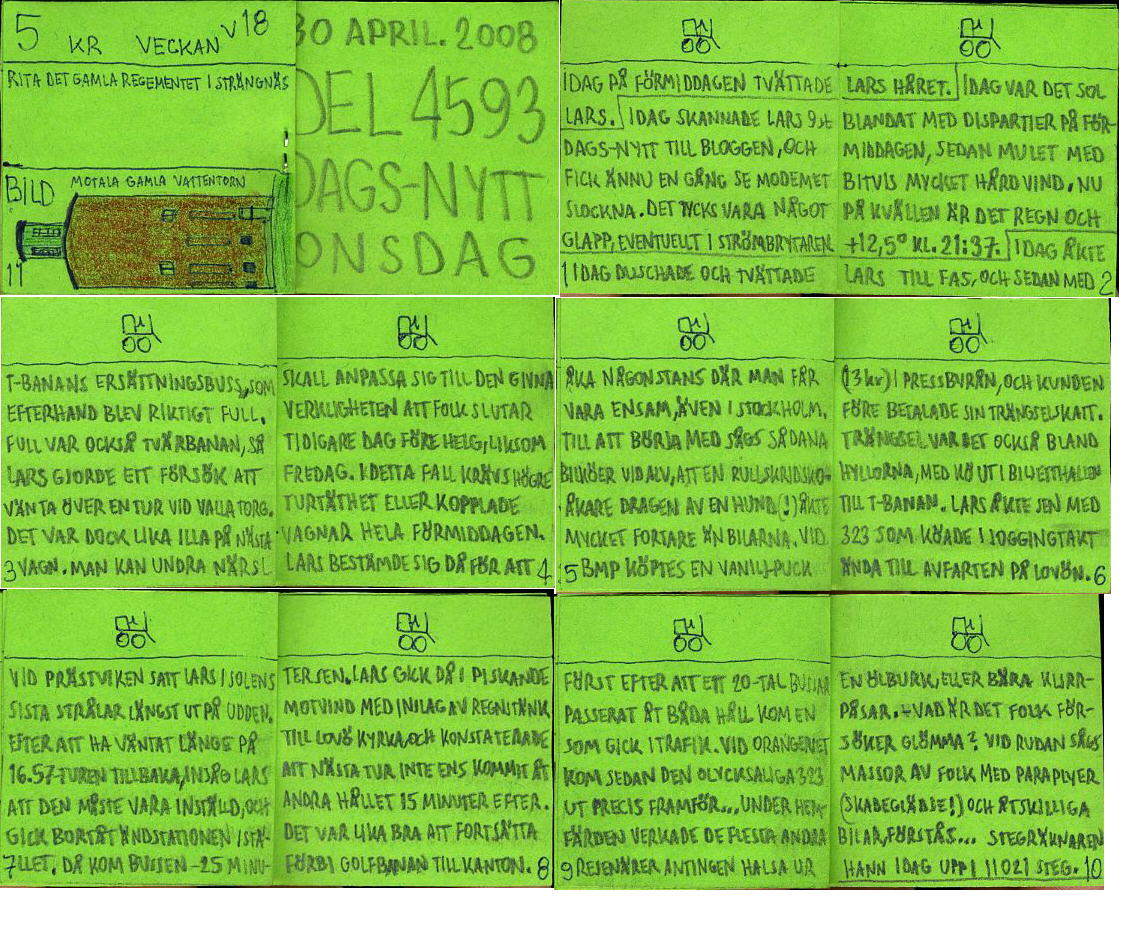 5 KR VECKAN V18
RITA DET GAMLA REGEMENTET I STRÄNGNÄS
BILD MOTALA GAMLA VATTENTORN
11
30 APRIL. 2008
DEL 4593
DAGS-NYTT
ONSDAG
IDAG PÅ FÖRMIDDAGEN TVÄTTADE
LARS. IDAG SKANNADE LARS 9st
DAGS-NYTT TILL BLOGGEN, OCH
FICK ÄNNU EN GÅNG SE MODEMET
SLOCKNA. DET TYCKS VARA NÅGOT
GLAPP, EVENTUELLT I STRÖMBRYTAREN
1 IDAG DUSCHADE OCH TVÄTTADE
LARS HÅRET. IDAG VAR DET SOL
BLANDAT MED DISPARTIER PÅ FÖR-
MIDDAGEN, SEDAN MULET MED
BITVIS MYCKET HÅRD VIND. NU
PÅ KVÄLLEN ÄR DET REGN OCH
+12,5° KL. 21:37. IDAG ÅKTE
LARS TILL FAS, OCH SEDAN MED 2
T-BANANS ERSÄTTNINGSBUSS, SOM
EFTERHAND BLEV RIKTIGT FULL.
FULL VAR OCKSÅ TVÄRBANAN, SÅ
LARS GJORDE ETT FÖRSÖK ATT
VÄNTA ÖVER EN TUR VID VALLA TORG.
DET VAR DOCK LIKA ILLA PÅ NÄSTA
3 VAGN. MAN KAN UNDRA NÄR SL
SKALL ANPASSA SIG TILL DEN GIVNA
VERKLIGHETEN ATT FOLK SLUTAR
TIDIGARE DAG FÖRE HELG, LIKSOM
FREDAG. I DETTA FALL KRÄVS HÖGRE
TURTÄTHET ELLER KOPPLADE
VAGNAR HELA FÖRMIDDAGEN.
LARS BESTÄMDE SIG DÅ FÖR ATT 4
ÅKA NÅGONSTANS DÄR MAN FÅR
VARA ENSAM, ÄVEN I STOCKHOLM.
TILL ATT BÖRJA MED SÅGS SÅDANA
BILKÖER VID ALV, ATT EN RULLSKRIDSKO-
ÅKARE DRAGEN AV EN HUND (!) ÅKTE
MYCKET FORTARE ÄN BILARNA. VID
5 BMP KÖPTES EN VANILJ-PUCK
(13 kr) I PRESSBYRÅN, OCH KUNDEN
FÖRE BETALADE SIN TRÄNGSELSKATT.
TRÄNGSEL VAR DET OCKSÅ BLAND
HYLLORNA, MED KÖ UT I BILJETTHALLEN
TILL T-BANAN. LARS ÅKTE SEN MED
323 SOM KÖADE I JOGGINGTAKT
ÄNDA TILL AVFARTEN PÅ LOVÖN. 6
VID PRÄSTVIKEN SATT LARS I SOLENS
SISTA STRÅLAR LÄNGST UT PÅ UDDEN.
EFTER ATT HA VÄNTAT LÄNGE PÅ
16.57-TUREN TILLBAKA, INSÅG LARS
ATT DEN MÅSTE VARA INSTÄLLD, OCH
GICK BORTÅT ÄNDSTATIONEN ISTÄ-
7 LLET. DÅ KOM BUSSEN -25 MINU-
TER SEN. LARS GICK DÅ I PISKANDE
MOTVIND MED INSLAG AV REGNSTÄNK
TILL LOVÖ KYRKA, OCH KONSTATERADE
ATT NÄSTA TUR INTE ENS KOMMIT ÅT
ANDRA HÅLLET 15 MINUTER EFTER.
DET VAR LIKA BRA ATT FORTSÄTTA
FÖRBI GOLFBANAN TILL KANTON. 8
FÖRST EFTER ATT ETT 20-TAL BUSSAR
PASSERAT ÅT BÅDA HÅLL KOM EN
SOM GICK I TRAFIK. VID ORANGERIET
KOM SEDAN DEN OLYCKSALIGA 323
UT PRECIS FRAMFÖR... UNDER HEM-
FÄRDEN VERKADE DE FLESTA ANDRA
9 RESENÄRER ANTINGEN HALSA UR
EN ÖLBURK, ELLER BÄRA KLIRR-
PÅSAR. - VAD ÄR DET FOLK FÖR-
SÖKER GLÖMMA? VID RUDAN SÅGS
MASSOR AV FOLK MED PARAPLYER
(SKADEGLÄDJE!) OCH ÅTSKILLIGA
BILAR, FÖRSTÅS... STEGRÄKNAREN
HANN IDAG UPP I 11021 STEG. 10